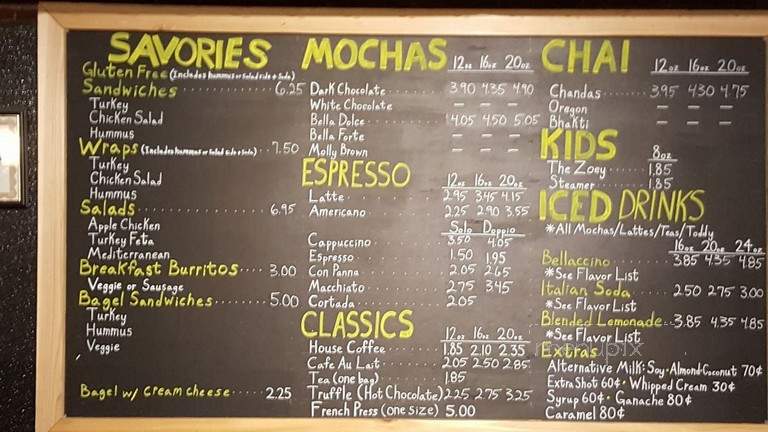 SAVORIES
Gluten Free (Includes hummus or Salad side + Soda)
Sandwiches 6.25
Turkey
Chicken Salad
Hummus
Wraps (Includes hummus or Salad side + Soda) 7.50
Turkey
Chicken Salad
Hummus
Salads 6.95
Apple Chicken
Turkey Feta
Mediterranean
Breakfast Burritos 3.00
Veggie or Sausage
Bagel Sandwiches 5.00
Turkey
Hummus
Veggie
Bagel w/ Cream Cheese 2.25
MOCHAS 12oz 16oz 20oz
Dark Chocolate 3.90 4.35 4.90
White Chocolate — — —
Bella Dolce 4.05 4.50 5.05
Bella Forte — — —
Molly Brown — — —
ESPRESSO 12oz 16oz 20oz
Latte 2.95 3.45 4.15
Americano 2.25 2.90 3.55
Solo Doppio
Cappuccino 3.50 4.05
Espresso 1.50 1.95
Con Panna 2.05 2.65
Macchiato 2.75 3.45
Cortada 2.05
CLASSICS 12oz 16oz 20oz
House Coffee 1.85 2.10 2.35
Cafe Au Lait 2.05 2.50 2.85
Tea (one bag) 1.85
Truffle (Hot Chocolate) 2.25 2.75 3.25
French Press (one size) 5.00
CHAI 12oz 16oz 20oz
Chandas 3.95 4.30 4.75
Oregon — — —
Bhakti — — —
KIDS 8oz
The Zoey 1.85
Steamer 1.85
ICED DRINKS
*All Mochas/Lattes/Teas/Toddy
16oz 20oz 24oz
Bellaccino 3.85 4.35 4.85
*See Flavor List
Italian Soda 2.50 2.75 3.00
*See Flavor List
Blended Lemonade 3.85 4.35 4.85
*See Flavor List
Extras
Alternative Milk: Soy·Almond·Coconut 70¢
Extra Shot 60¢ · Whipped Cream 30¢
Syrup 60¢ · Ganache 80¢
Caramel 80¢